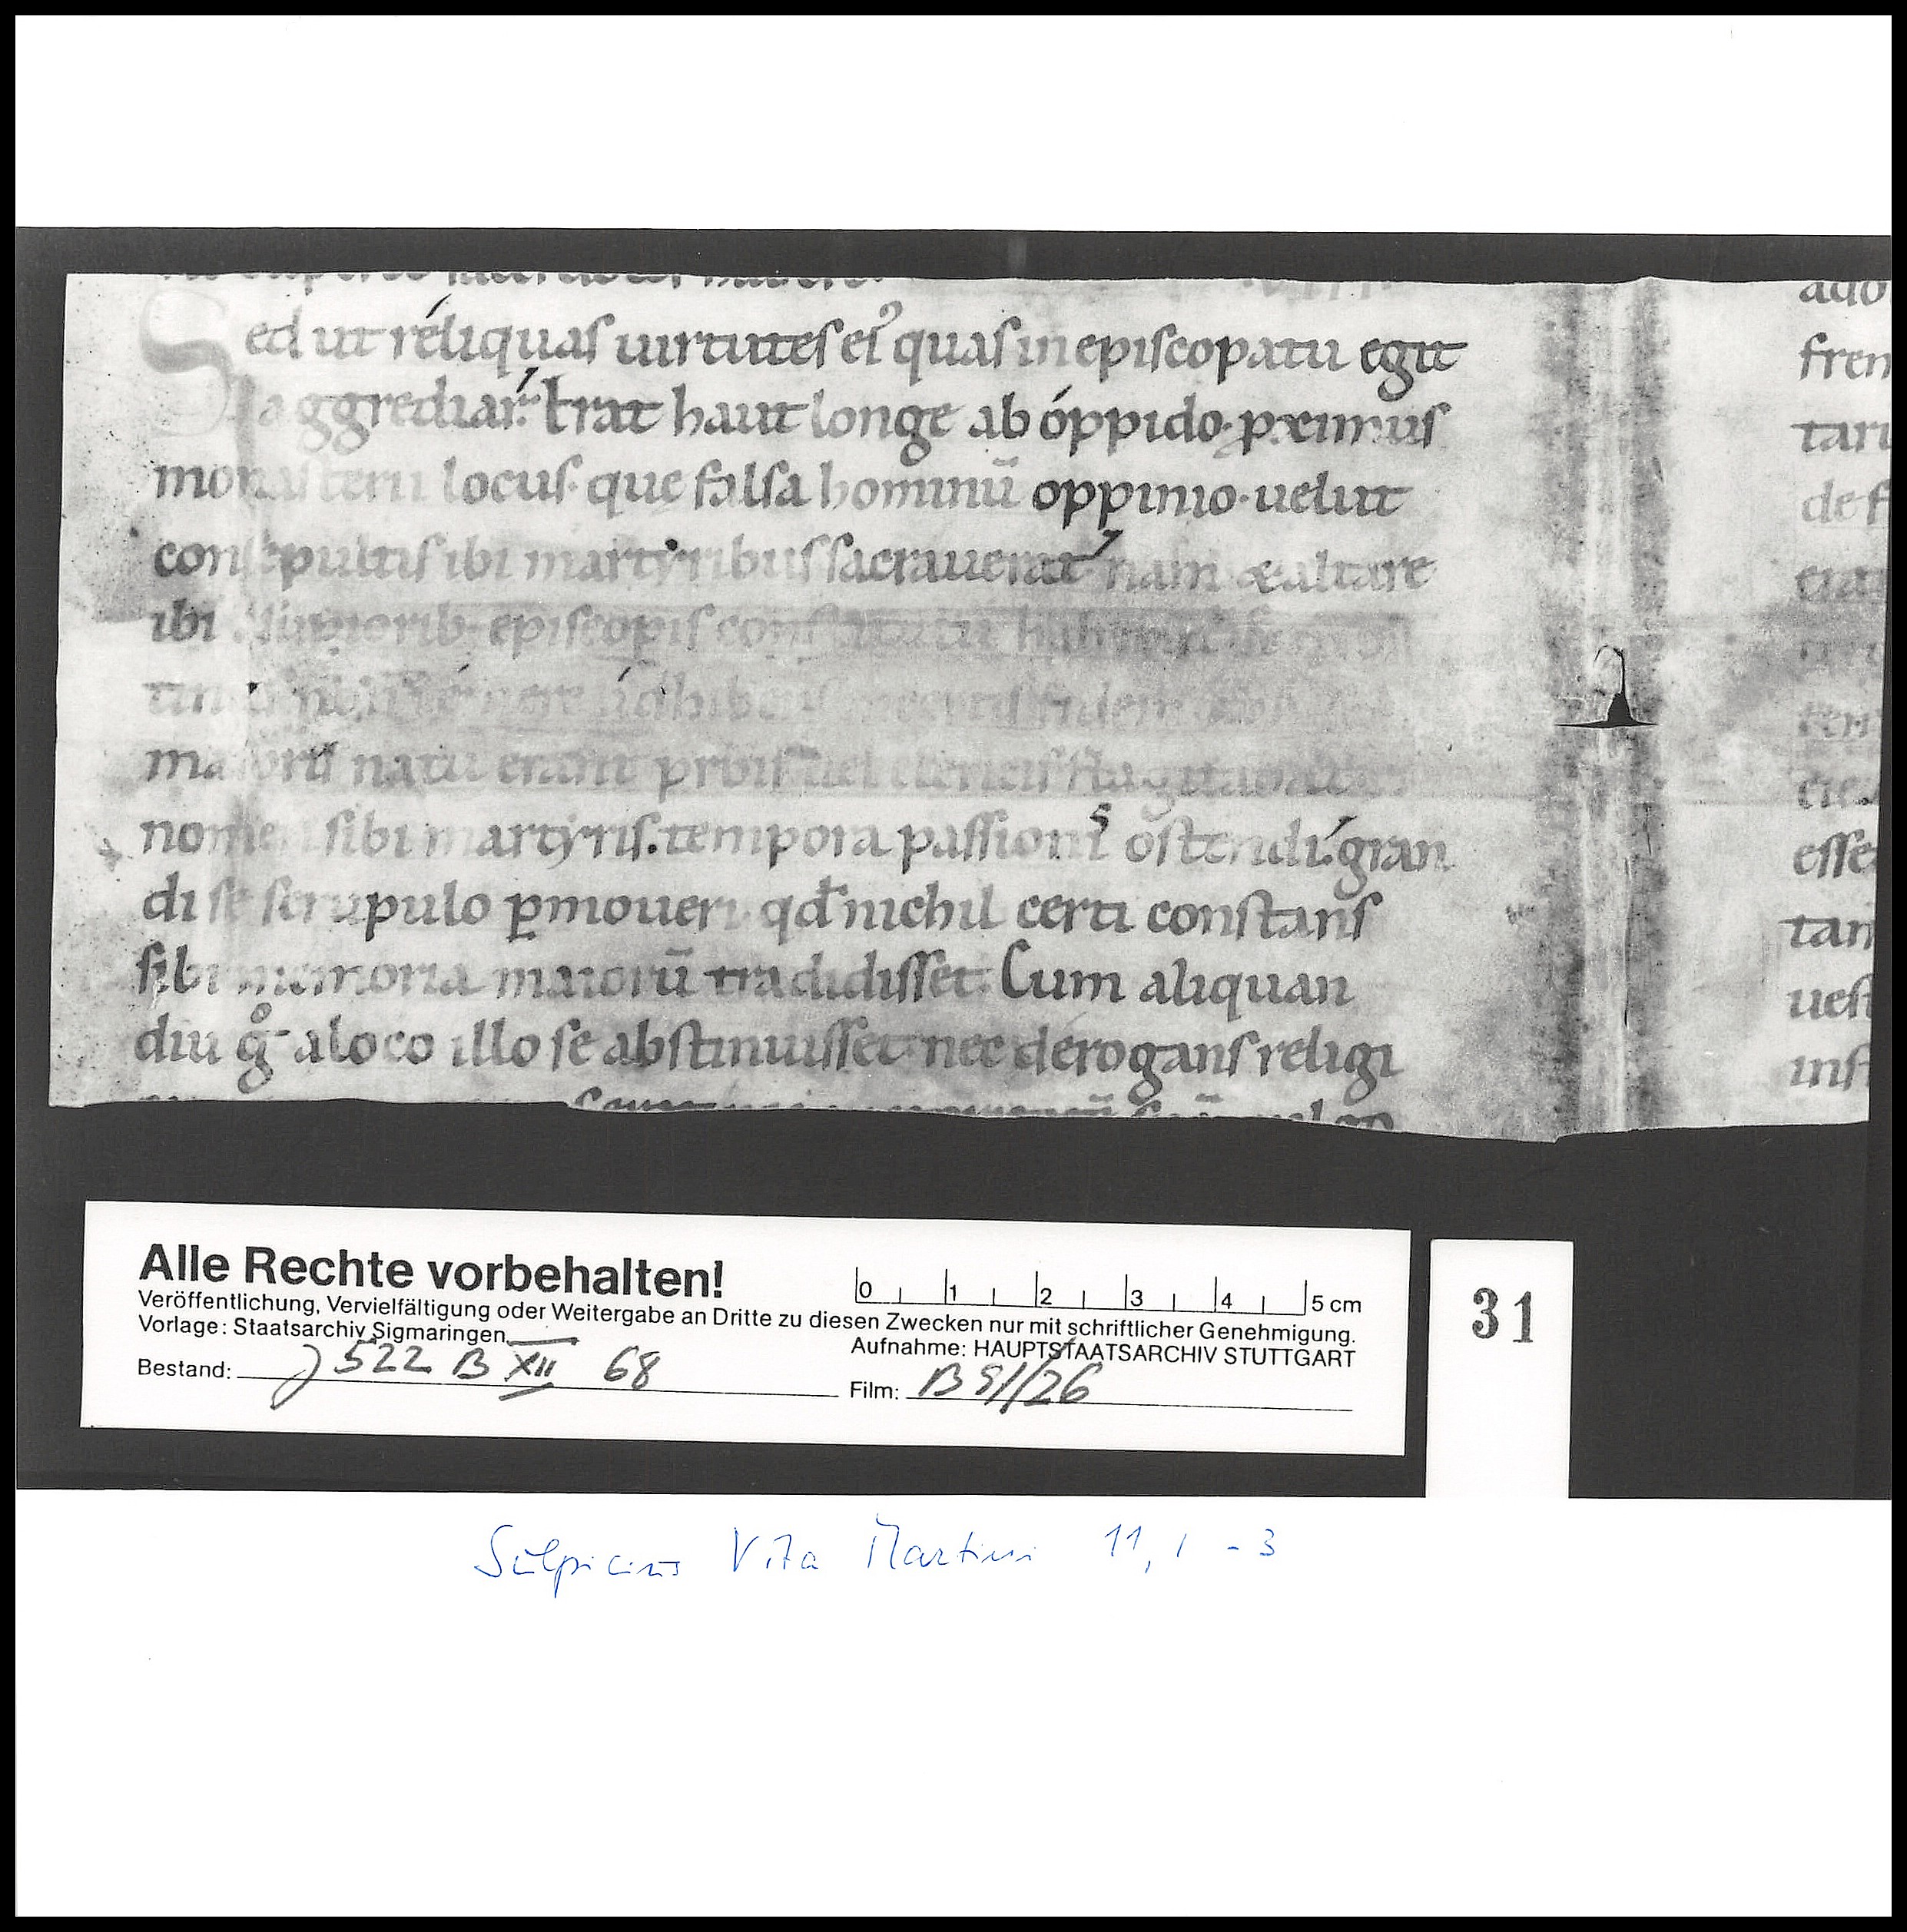 Sed ut réliquaſ uirtuteſ eiꝰ quaſ in epiſcopatu egit
aggrediar. Erat haut longe ab óppido. ꝓximus
monaſterii locuſ. que falſa hominū oppinio. uelut
conſepultiſ ibi martẏribuſ ſacrauerat nam & altare
ibi ſuperiorib epiſcopiſ conſtitutū
adhibenſ fidem
maioreſ natu erant prbiſ uel clericiſ flagitabat
nomen ſibi martẏriſ. tempora paſſioniſ oſtendi. gran
di ſe ſcrupulo ꝑmoueri. qđ nichil certi conſtanſ
ſibi memoria maiorū tradidiſſet. Cum aliquan
diu gͦ a loco illo ſe abſtinuiſſet. nec déroganſ religi
ado
fren
tari
de f
erat
cie
eſſe
tan
ueſ
inſ
Alle Rechte vorbehalten!
0 1 2 3 4 5 cm
Veröffentlichung, Vervielfältigung oder Weitergabe an Dritte zu diesen Zwecken nur mit schriftlicher Genehmigung.
Vorlage: Staatsarchiv Sigmaringen
Aufnahme: HAUPTSTAATSARCHIV STUTTGART
Bestand: J 522 B XII 68
Film: B 91/26
31
Sulpicius Vita Martini 11, 1 - 3